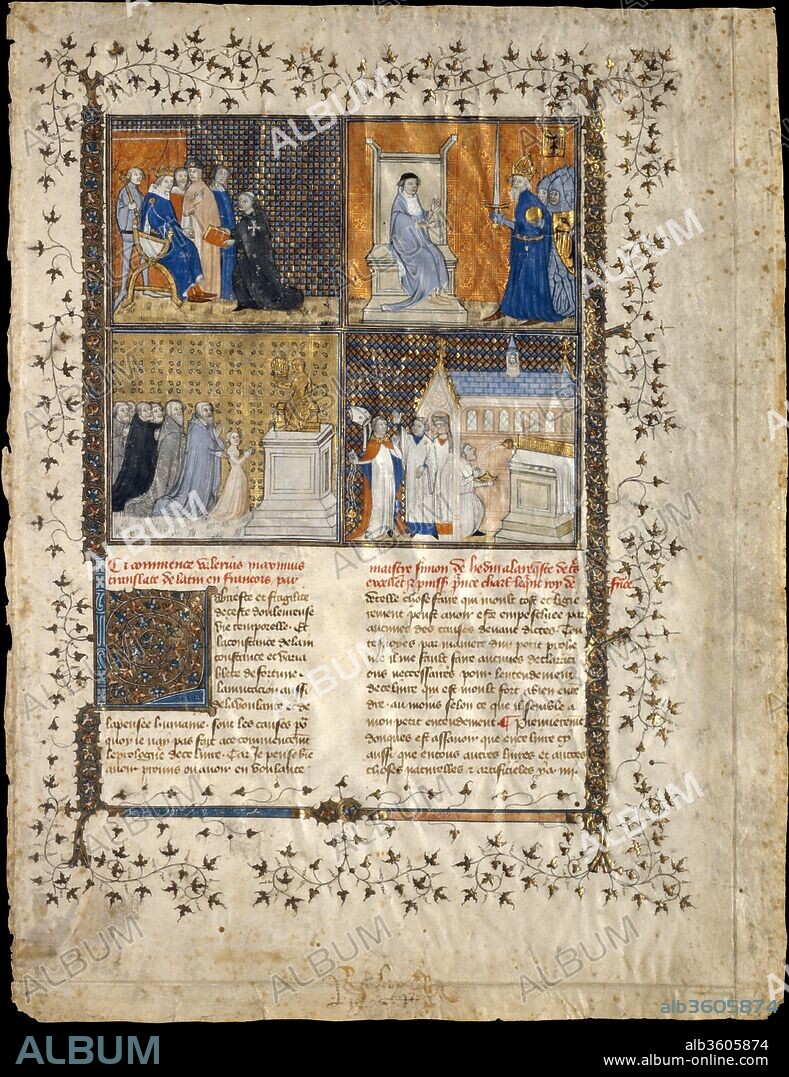 Ci commence Valerius maximus
translate de latin en francois par
maistre simon de hesdin a la requeste de
excellent & prince charles le quint roy de france
et fragilite
de ceste douloureuse
vie temporelle. Et
la constance de lain
constance et varia
blete de fortune.
la mutacion aussi
de la voulente et de
la pensee humaine. sont les causes
quoy le nay pas fait a ce commencement
le prologue de ce livre. Car Je pense
avoir promis ou avoir en voulente
de telle chose faire qui moult tost et ligie
rement peust avoir este empeschiee par
aucunes des causes devant dictes. Tou
tesvoyes par maniere dun petit prolo
gue il me fault faire aucunes declaraci
ons necessaires pour lentendement
de ce livre qui est moult fort a bien enten
dre. au moins selon ce quil semble a
mon petit entendement. Premierement
donques est assavoir que en ce livre cy
aussi que en tous autres livres et autres
choses naturelles & artificieles ya
ALBUM
alb3605874
alb3605874
www.album-online.com